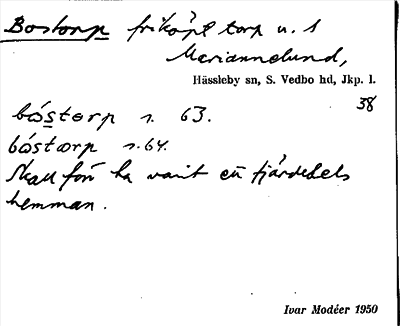 Bostorp friköpt torp n. 1
Mariannelund,
Hässleby sn, S. Vedbo hd, Jkp. l.
38
bóstorp s. 63.
bóstorp s. 64.
Skall förr ha varit ett fjärdedels
hemman.
Ivar Modéer 1950